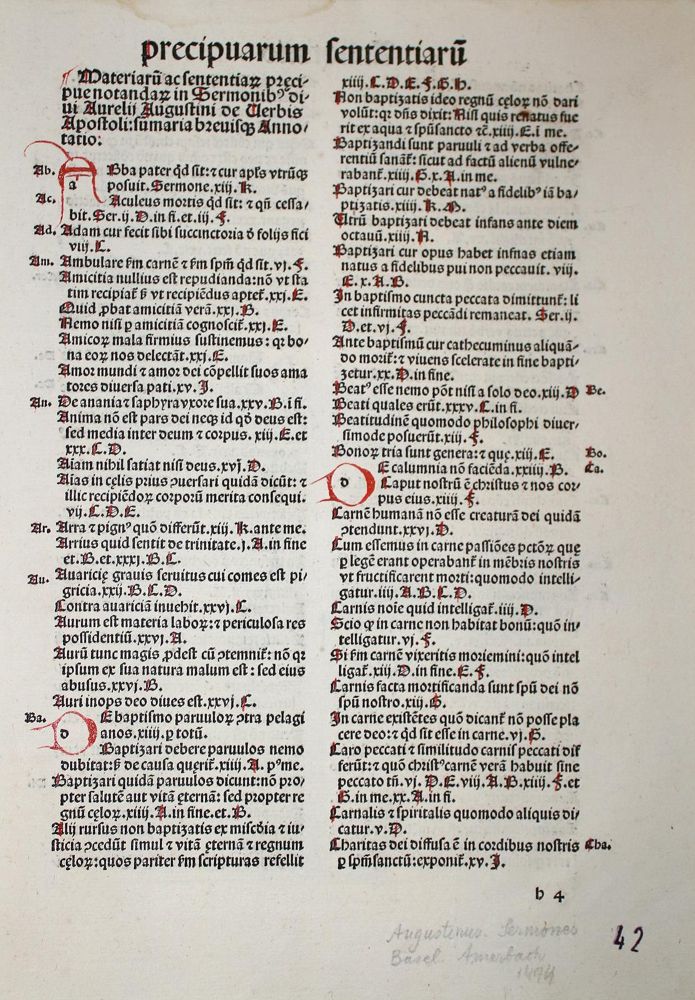 precipuarum sententiarū
Materiarū ac sententiaꝝ pręci-
pue notandaꝝ in Sermonibꝰ di-
ui Aurelij Augustini de Uerbis
Apostoli: sumaria breuisqꝫ Anno-
tatio:
Ab. Abba pater qd sit: ⁊ cur apłs vtrūqꝫ
a posuit. Sermone.xiij.K.
Ac. Aculeus mortis qd sit: ⁊ qñ cessa-
bit. Ser.ij.D.in fi.et.iij.F.
Ad. Adam cur fecit sibi succinctoria ð folijs fici
viij.C.
Am. Ambulare fm carnē ⁊ fm spm̄ qd sit.vj.F.
Amicitia nullius est repudianda: nō vt sta
tim recipiat̄ ß vt recipiēdus aptet̄.xxj.E.
Quid ꝓbat amicitiā verā.xxj.B.
Nemo nisi ꝑ amicitiā cognoscit̄.xxj.E.
Amicoꝝ mala firmius sustinemus: qꝛ bo-
na eoꝝ nos delectāt.xxj.E.
Amor mundi ⁊ amor dei cōpellit suos ama
tores diuersa pati.xv.J.
An. De anania ⁊ saphyra vxore sua.xxv.B.ī fi.
Anima nō est pars dei necqꝫ id qð deus est:
sed media inter deum ⁊ corpus. xiij.E.et
xxx.C.D.
Aīam nihil satiat nisi deus.xvj.D.
Aīas in cęlis prius ꝯuersari quidā dicūt: ⁊
illic recipiēdoꝝ corporū merita consequi.
vij.C.D.E.
Ar. Arra ⁊ pignꝰ quō differūt.xiij.K.ante me.
Arrius quid sentit de trinitate.j.A.in fine
et.B.et.xxxj.B.C.
Au. Auaricię grauis seruitus cui comes est pi-
gricia.xxij.B.C.D.
Contra auariciam inuehit.xxvj.C.
Aurum est materia laboꝝ: ⁊ periculosa res
possidentiū.xxvj.A.
Aurū tunc magis ꝓdest cū ꝯtemnit̄: nō qꝛ
ipsum ex sua natura malum est: sed eius
abusus.xxvj.B.
Auri inops deo diues est.xxvj.C.
Ba. DE baptismo paruuloꝝ ꝯtra pelagi
d anos.xiiij.ꝑ totū.
Baptizari debere paruulos nemo
dubitat: ß de causa quęrit̄.xiiij.A.pꝰme.
Baptizari quidā paruulos dicunt: nō pro-
pter salutē aut vitā ęternā: sed propter re
gnū cęloꝝ.xiiij.A.in fine.et.B.
Alij rursus non baptizatis ex mīa ⁊ iu-
sticia ꝯcedūt simul ⁊ vitā ęternā ⁊ regnum
cęloꝝ: quos pariter fm scripturas refellit
xiiij.C.D.E.F.G.H.
Non baptizatis ideo regnū cęloꝝ nō dari
volūt: qꝛ dn̄s dixit: Nisi quis renatus fue
rit ex aqua ⁊ spūsancto ⁊č.xiiij.E.ī me.
Baptizandi sunt paruuli ⁊ ad verba offe-
rentiū sanāt̄: sicut ad factū alienū vulne-
rabant̄.xiiij.G.x.A.in me.
Baptizari cur debeat natꝰ a fidelibꝰ iā ba-
ptizatis.xiiij.K.M.
Utrū baptizari debeat infans ante diem
octauū.xiiij.N.
Baptizari cur opus habet infnas etiam
natus a fidelibus ꝗ non peccauit. viij.
E.x.A.B.
In baptismo cuncta peccata dimittunt̄: li
cet infirmitas peccādi remaneat. Ser.ij.
D.et.vj.F.
Ante baptismū cur cathecuminus aliquā-
do morit̄: ⁊ viuens scelerate in fine bapti-
zetur.xx.D.in fine.
Beatꝰ esse nemo pōt nisi a solo deo.xiij.D Be.
Beati quales erūt.xxxv.C.in fi.
Beatitudinē quomodo philosophi diuer-
simode posuerūt.xiij.F.
Bonoꝝ tria sunt genera: ⁊ quę.xiij.E. Bo.
DE calumnia nō faciēda.xxiiij.B. Ca.
d Caput nostrū ē christus ⁊ nos cor-
pus eius.xiiij.F.
Carnē humanā nō esse creaturā dei quidā
ꝯtendunt.xxvj.D.
Cum essemus in carne passiōes pctōꝝ quę
ꝑ legē erant operabant̄ in mēbris nostris
vt fructificarent morti: quomodo intelli-
gatur.iiij.A.B.C.D.
Carnis noīe quid intelligat̄.iiij.D.
Scio qꝫ in carne non habitat bonū: quō in-
telligatur.vj.F.
Si fm carnē vixeritis moriemini: quō intel
ligat̄.xiij.D.in fine.E.F.
Carnis facta mortificanda sunt spū dei nō
spū nostro.xiij.G.
In carne existētes quō dicant̄ nō posse pla
cere deo: ⁊ qd sit esse in carne.vj.G.
Caro peccati ⁊ similitudo carnis peccati dif
ferūt: ⁊ quō christꝰ carnē verā habuit sine
peccato tn̄.vj.D.E.viij.A.B.xiij.F.et
G.in me.xx.A.in fi.
Carnalis ⁊ spiritalis quomodo aliquis di-
catur.v.D.
Charitas dei diffusa ē in cordibus nostris Cha.
ꝑ spm̄sanctū: exponit̄.xv.J.
b 4
Augustenus. Sermones
Basel. Amerbach
1494
42